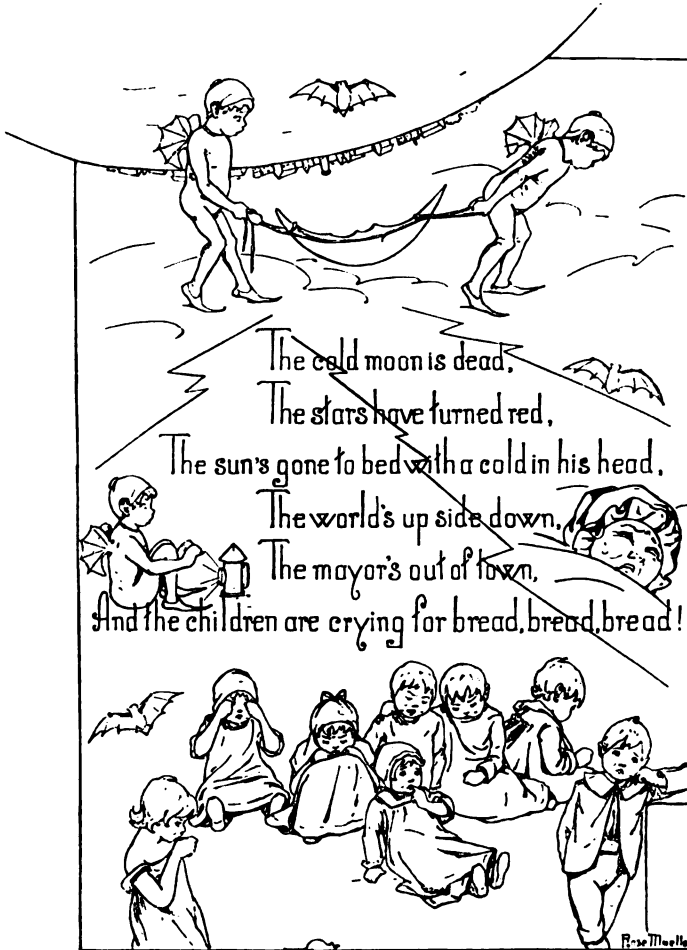 The cold moon is dead,
The stars have turned red,
The sun's gone to bed with a cold in his head,
The world's up side down,
The mayor's out of town,
And the children are crying for bread, bread, bread!